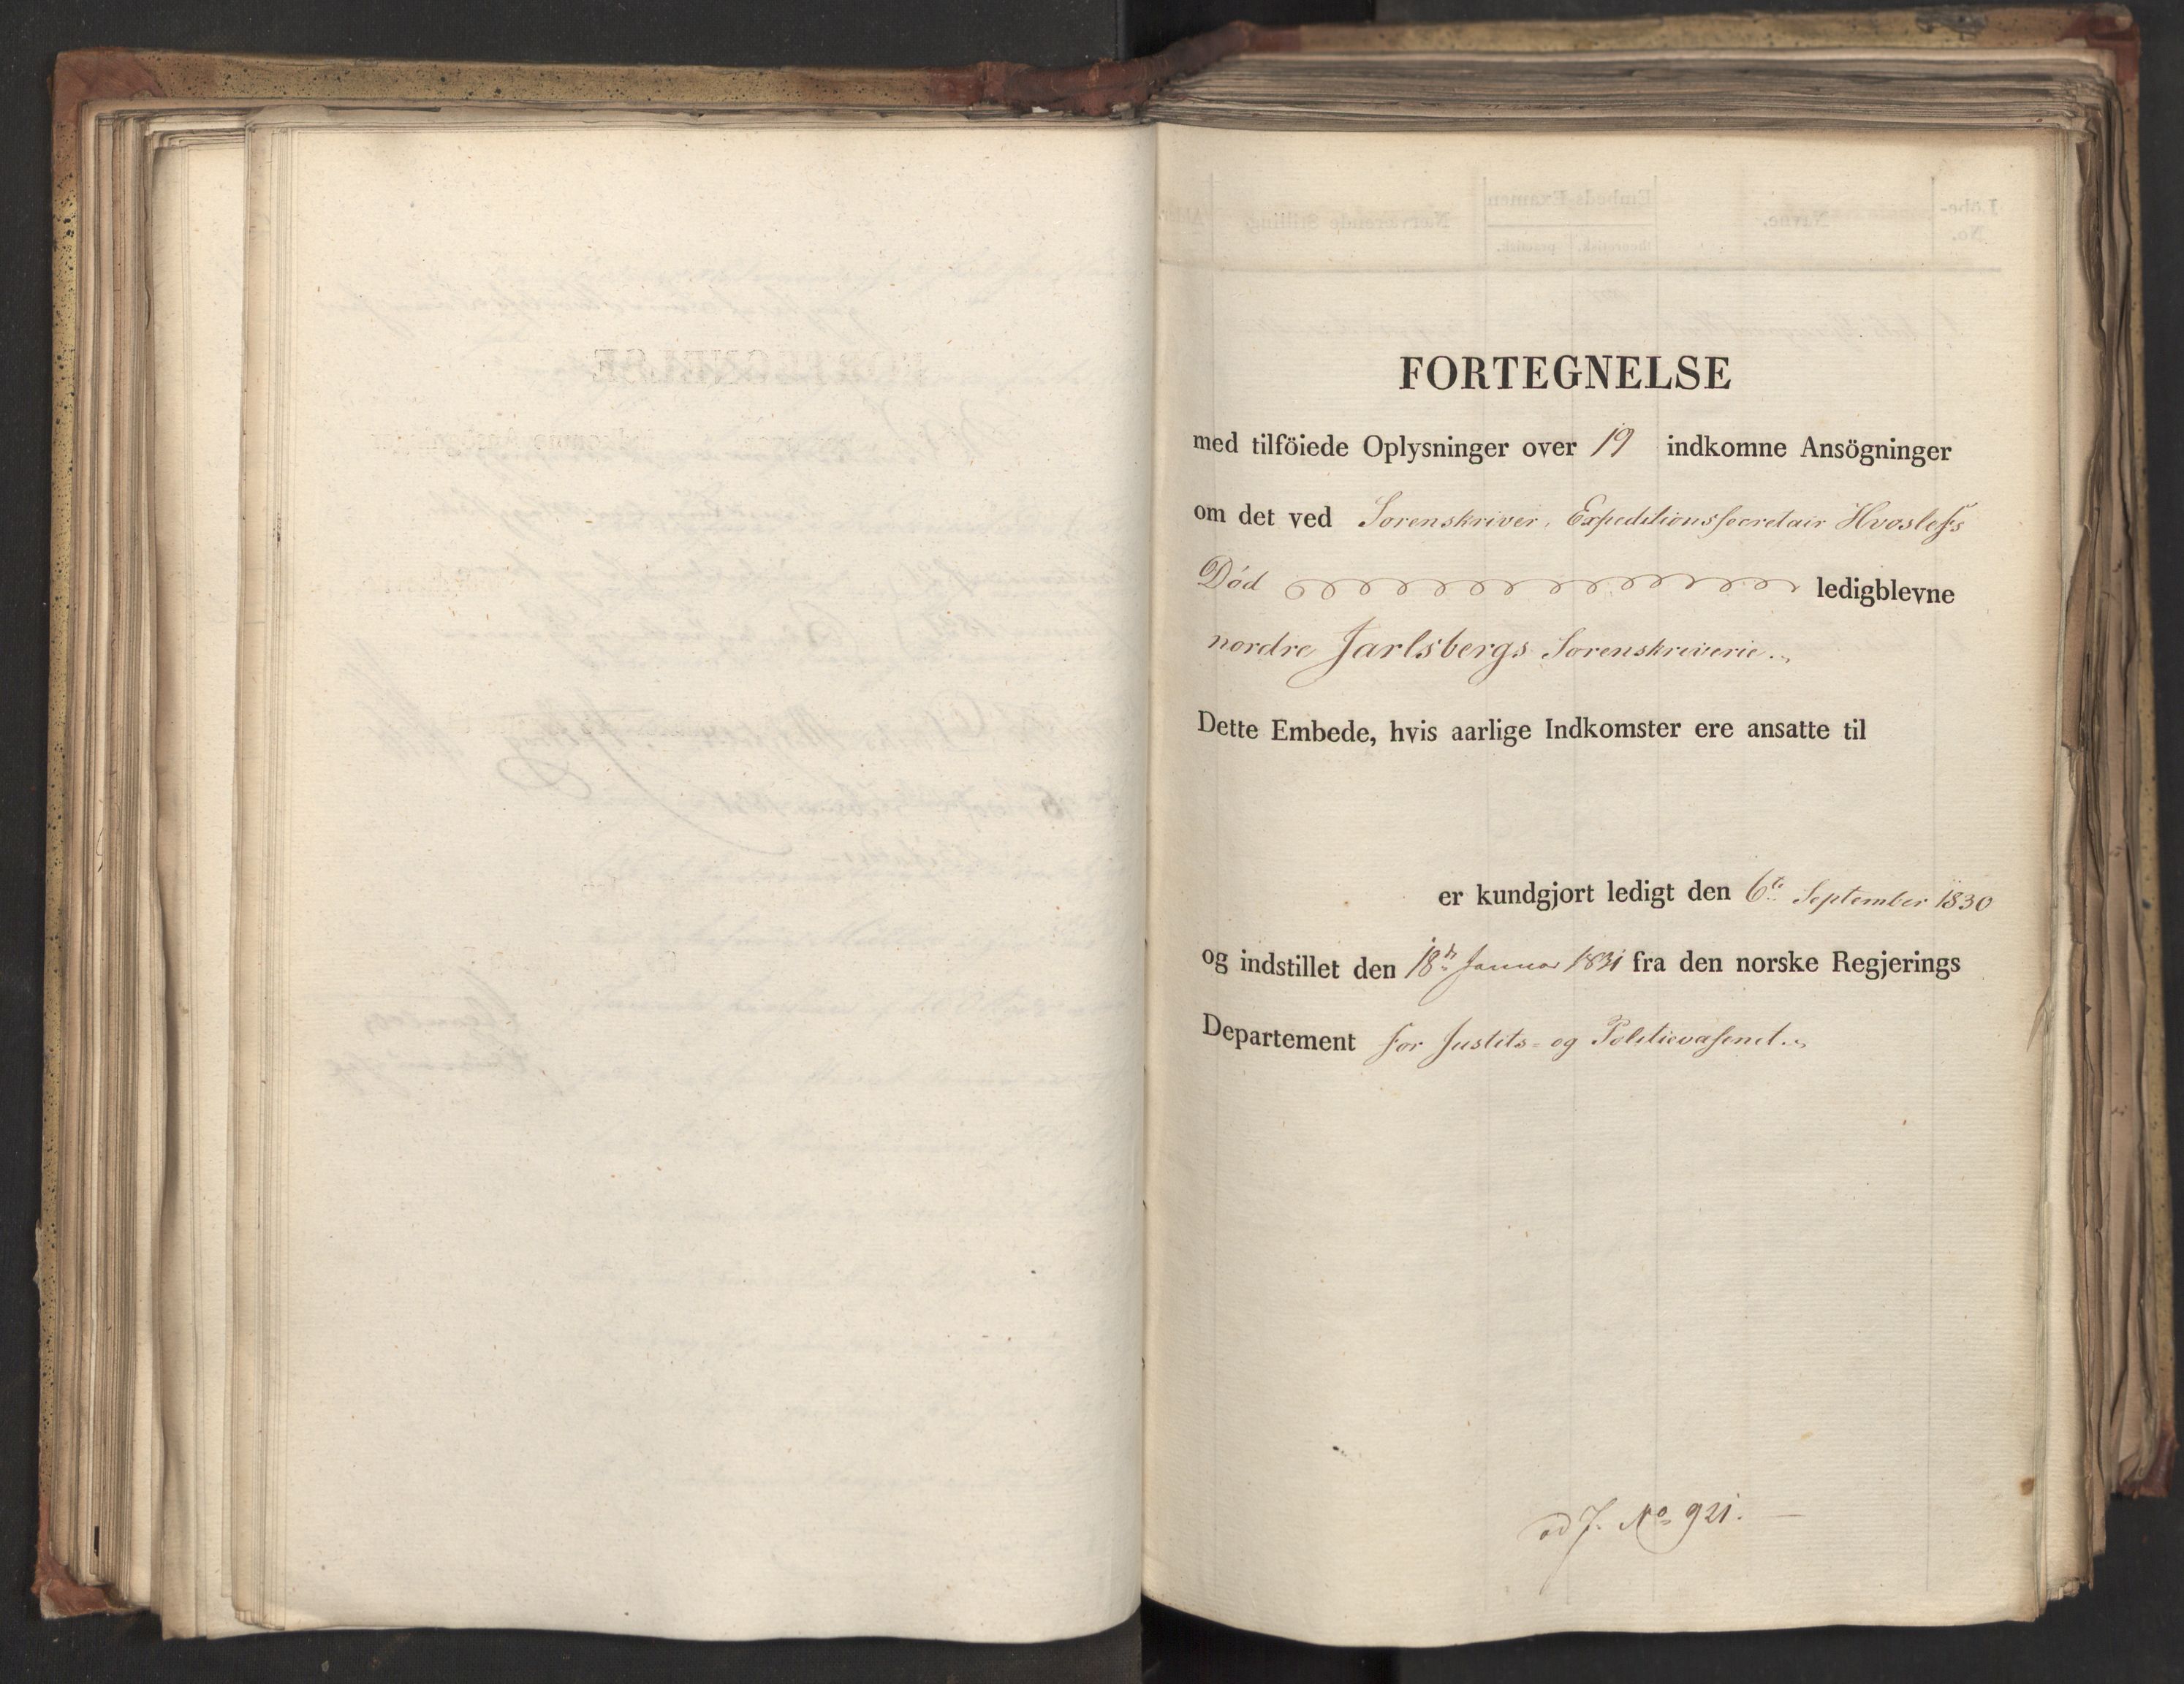 FORTEGNELSE
med tilföiede Oplysninger over 19 indkomne Ansögninger
om det ved Sorenskriver, Expeditionssecretair Hvoslefs
Död ledigblevne
nordre Jarlsbergs Sorenskriverie.
Dette Embede, hvis aarlige Indkomster ere ansatte til
er kundgjort ledigt den 6te September 1830
og indstillet den 18de Januar 1831 fra den norske Regjerings
Departement for Justits- og Politievæsenet.
ad J. No 921.